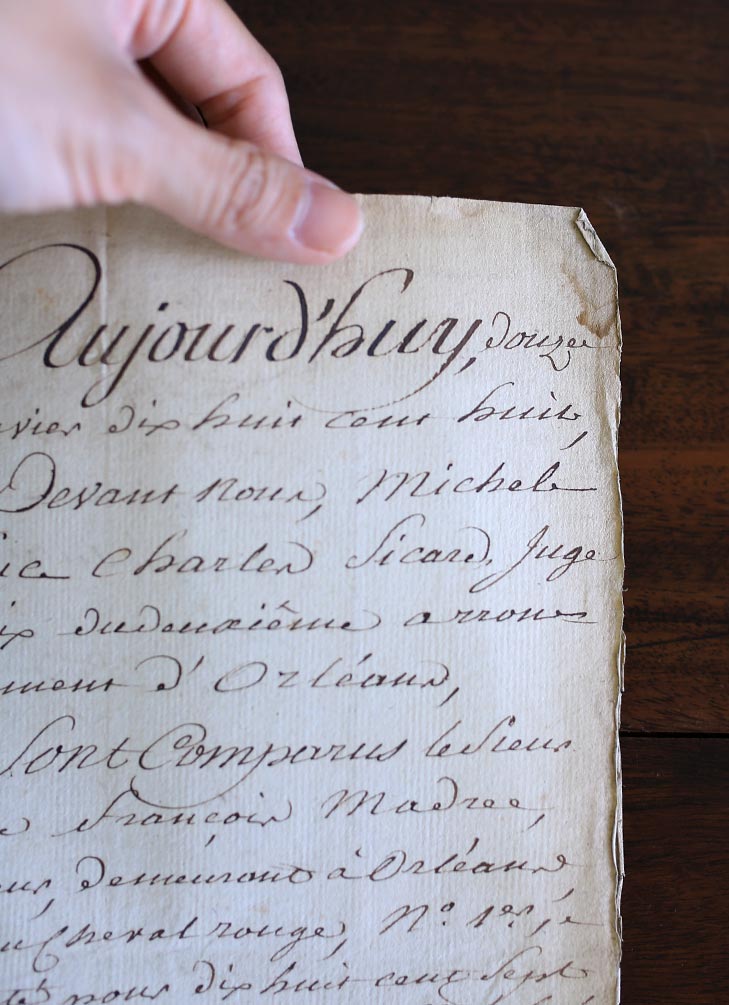 Aujourd'huy, douze
vier dix huit cent huit,
Devant nous, Michel
ice Charles Sicard, Juge
ix du deuxième arron=
ment d'Orléans,
Sont Comparus le Sieur
François Madree,
eur, demeurant à Orléans,
u Cheval rouge, N.º 1.er,
té pour dix huit cent sept